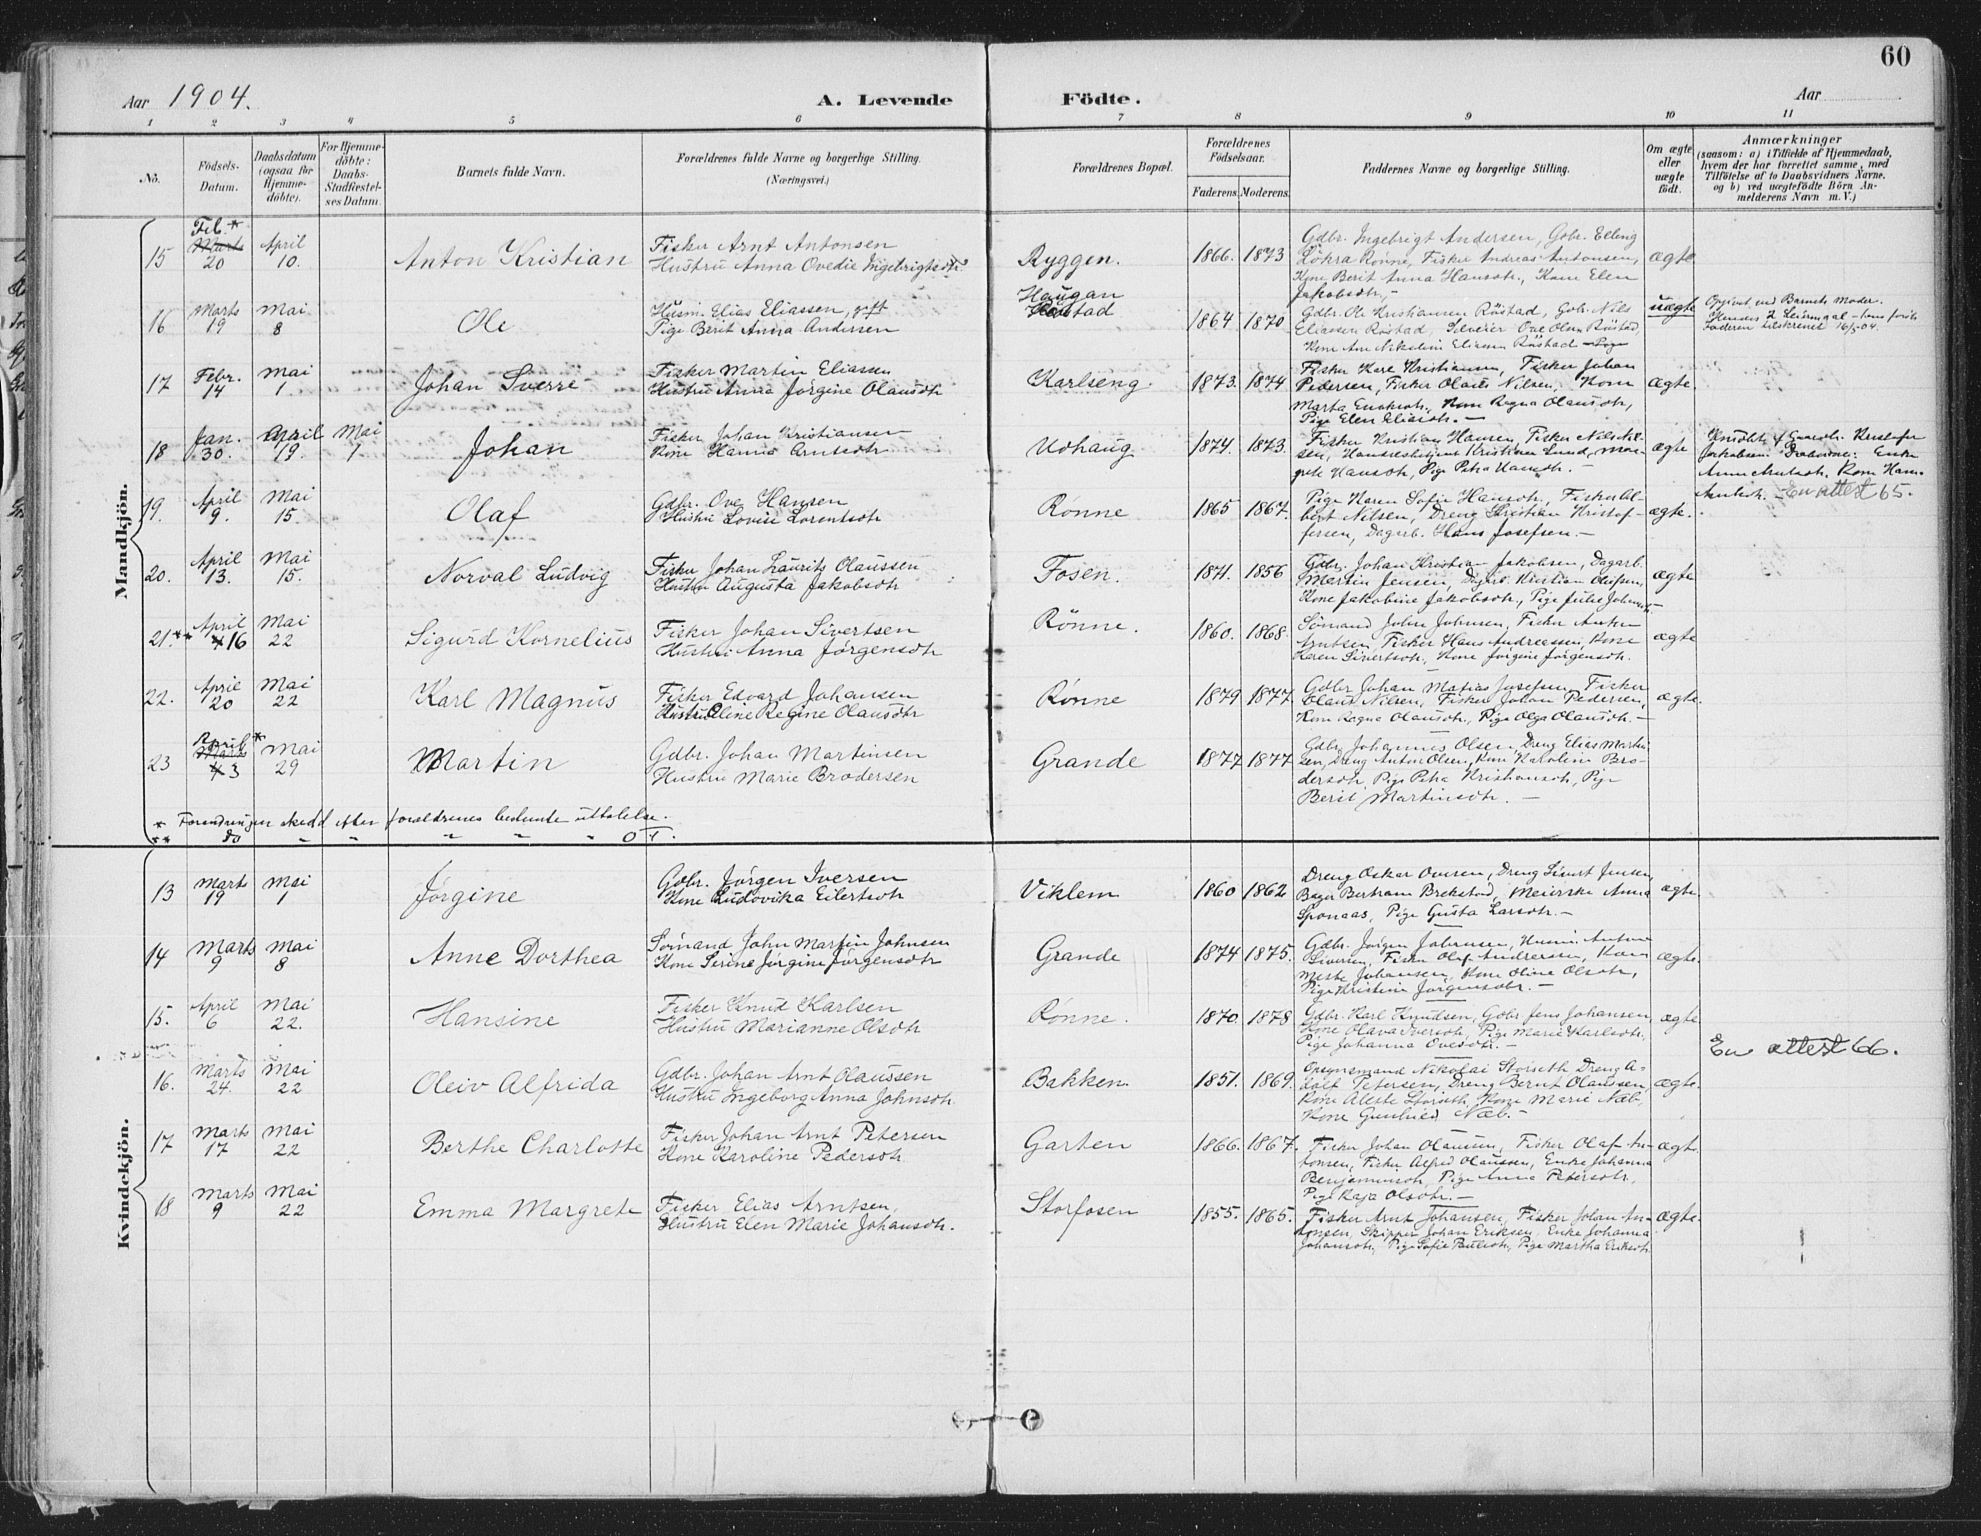 60
Aar 1904.
A. Levende Födte.
Aar
1 2 3 4 5 6 7 8 9 10 11
No.
Födsels-Datum.
Daabsdatum (ogsaa for Hjemme-döbte).
For Hjemme-döbte: Daabs-Stadfæstel-ses Datum.
Barnets fulde Navn.
Forældrenes fulde Navne og borgerlige Stilling.
(Næringsvei.)
Forældrenes Bopæl.
Forældrenes Födselsaar.
Faderens. Moderens.
Faddernes Navne og borgerlige Stilling.
Om ægte eller uægte födt.
Anmærkninger
(saasom: a) i Tilfælde af Hjemmedaab,
hvem der har forrettet samme, med
Tilföielse af to Daabsvidners Navne,
og b) ved uægtefödte Börn An-
melderens Navn m. V.)
Mandkjön.
15 Feb.* Marts 20 April 10. Anton Kristian
Fisker Arnt Antonsen
Hustru Anna Ovedie Ingebrigtsdtr.
Ryggen. 1866. 1873
Gdbr. Ingebrigt Andersen, Gobr. Elling
Rønne, Fisker Andreas Antonsen,
Kone Berit Anna Hansdtr., Kone Elen
Jakobsdtr.
ægte
16 Marts 19 Mai 8 Ole
Husm. Elias Eliassen, gift
Pige Berit Anna Andersen
Haugan
1864 1870
Gdbr. Ole Kristiansen Röstad, Gobr. Nils
Eliassen Röstad, Ove Olsen Röstad
Kone Ane Nikoline Eliassen Röstad — Pige
uægte
Opgivet ved Barnets Moder.
17 Febr. 14 Mai 1. Johan Sverre
Fisker Martin Eliassen
Hustru Anna Jörgine Olausdtr
Karlseng. 1873. 1874
Fisker Kare Kristiansen, Fisker Johan
Pedersen, Fisker Olaus Nilsen, Kone
Marta Enoksdtr., Kone Ragna Olausdtr,
Pige Elen Eliasdtr. —
ægte.
18 Jan. 30. April 19. Mai 1 Johan
Fisker Johan Kristiansen
Kone Hanna Arntsdtr
Udhaug 1874. 1873.
Fisker Kristian Hansen, Fisker Nils Nil-
sen, Kristian Lund, Mar-
grete Hansdtr, Pige Petra Hansdtr. —
ægte
En attest 65.
19. April 9. Mai 15. Olaf
Gdbr. Ove Hansen
Hustru Lovise Lorentsdtr
Rønne 1865 1867.
Pige Karen Sofie Hansdtr., Fisker Al-
bert Nilsen, Dreng Kristian Kristof-
fersen, Dagarb. Hans Josefsen. —
ægte.
20. April 13. Mai 15. Norval Ludvig
Fisker Johan Laurits Olaussen
Hustru Augusta Jakobsdtr
Fosen. 1871. 1856
Gdbr. Johan Kristian Jakobsen, Dagarb.
Martin Jensen, Dagarb. Kristian Olufsen,
Kone Jakobine Jakobsdtr, Pige Julie Johansdtr
ægte
21.** April 16 Mai 22 Sigurd Kornelius
Fisker Johan Sivertsen
Hustru Anna Jörgensdtr
Rønne. 1860. 1868.
Sömand Johan Johnsen, Fisker Anton
Arntsen, Fisker Hans Andreassen, Kone
Karen Sivertsdtr, Kone Jörgine Jörgensdtr.
ægte
22. April 20 Mai 22 Karl Magnus
Fisker Edvard Johansen
Hustru Oline Regine Olausdtr
Rønne 1879 1877.
Gdbr. Johan Matias Josefsen, Fisker
Olaus Nilsen, Fisker Johan Pedersen,
Kone Ragna Olausdtr., Pige Olga Olausdtr. —
ægte.
23 April* Marts 3 Mai 29 Martin
Gdbr. Johan Martinsen
Hustru Marie Brodersen
Grande 1877 1877
Gdbr. Johannes Olsen, Dreng Elias Martin-
sen, Dreng Anton Olsen, Kone Karoline Bro-
dersdtr, Pige Petra Kristiansdtr, Pige
Berit Martinsdtr. —
* Forandringen skedd efter forældrenes bestemte uttalelse.
** do " " " " " O T.
Kvindekjön.
13 Marts 19 Mai 1 Jörgine
Gdbr. Jörgen Iversen
Kone Ludovika Eilertsdtr
Viklem 1860 1862
Dreng Oskar Ovesen, Dreng Sivert Jensen,
Bager Bertram Brekstad, Meierske Anna
Sponaas, Pige Gusta Larsdtr. —
ægte.
14 Marts 9 Mai 8 Anne Dorthea
Sömand John Martin Johnsen
Kone Serine Jörgine Jörgensdtr
Grande 1874 1875.
Gdbr. Jörgen Johansen, Husm. Anton
Siversen, Fisker Olaf Andreassen, Kone
Johansen, Kone Oline Olsdtr,
Pige Kristine Jörgensdtr. —
ægte.
15. April 6 Mai 22. Hansine
Fisker Knud Karlsen
Hustru Marianne Olsdtr
Rønne. 1870. 1878
Gdbr. Karl Knudsen, Gobr. Jens Johansen
Kone Olava Iversdtr, Pige Marie Karlsdtr.
Pige Johanna Ovesdtr. —
ægte
En attest 66.
16. Marts 24. Mai 22 Oleiv Alfrida
Gdbr. Johan Arnt Olaussen
Hustru Ingeborg Anna Johnsdtr.
Bakken. 1851. 1869.
Opsynsmand Nikolai Storseth Dreng A-
dolf Petersen, Dreng Bernt Olaussen,
Kone Aleste Storseth, Kone Marie Næb,
Kone Gunhild Næb. —
ægte.
17 Marts 17 Mai 22 Berthe Charlotte
Fisker Johan Arnt Petersen
Kone Karoline Pedersdtr
Garten 1866. 1867.
Fisker Johan Olaussen, Fisker Olaf An-
tonsen, Fisker Alfred Olaussen, Enke Johanna
Benjaminsdtr, Pige Anna Petersdtr,
Pige Kaja Olsdtr. —
ægte.
18 Marts 9 Mai 22 Emma Margrete
Fisker Elias Arntsen,
Hustru Elen Marie Johansdtr.
Storfosen 1855. 1865.
Fisker Arnt Johansen, Fisker Johan An-
tonsen, Skipper Johan Eriksen, Enke Johanna
Johansdtr, Pige Sofie Paulsdtr, Pige Martha Eriksdtr
ægte.